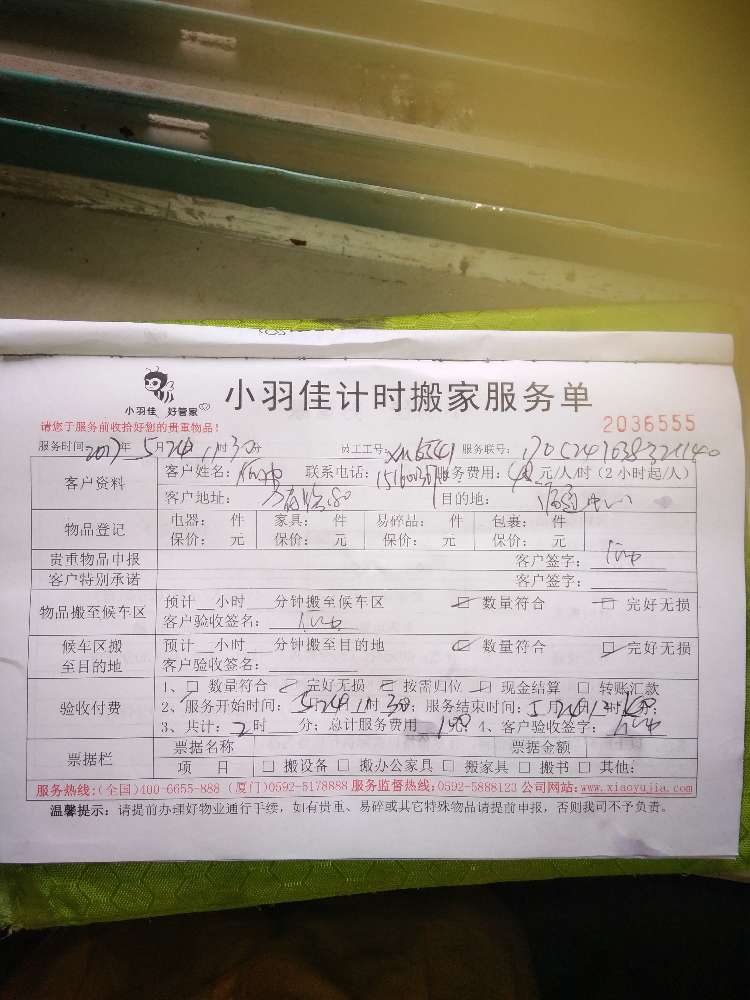 小羽佳 好管家
小羽佳计时搬家服务单
2036555
请您于服务前收拾好您的贵重物品！
服务时间：2017年 5月24 11时30分 员工工号：XM6541 服务联号：
客户资料
客户姓名： 联系电话： 服务费用： 元/人/时（2小时起/人）
客户地址： 目的地：
物品登记
电器： 件 家具： 件 易碎品： 件 包裹： 件
保价： 元 保价： 元 保价： 元 保价： 元
贵重物品申报 客户签字：
客户特别承诺 客户签字：
物品搬至候车区
预计__小时___分钟搬至候车区 ☑ 数量符合 ☑ 完好无损
客户验收签名：
候车区搬至目的地
预计__小时___分钟搬至目的地 ☑ 数量符合 ☑ 完好无损
客户验收签名：
验收付费
1、□ 数量符合 ☑ 完好无损 ☑ 按需归位 □ 现金结算 □ 转账汇款
2、服务开始时间：5月24日11时30分；服务结束时间：5月24日 时 分；
3、共计：2时___分；总计服务费用 元；4、客户验收签字：
票据栏
票据名称 票据金额
项 目 □ 搬设备 □ 搬办公家具 □ 搬家具 □ 搬书 □ 其他：
服务热线：(全国)400-6655-888 (厦门)0592-5178888 服务监督热线：0592-5888123 公司网站：www.xiaoyujia.com
温馨提示：请提前办理好物业通行手续，如有贵重、易碎或其它特殊物品请提前申报，否则我司不予负责。